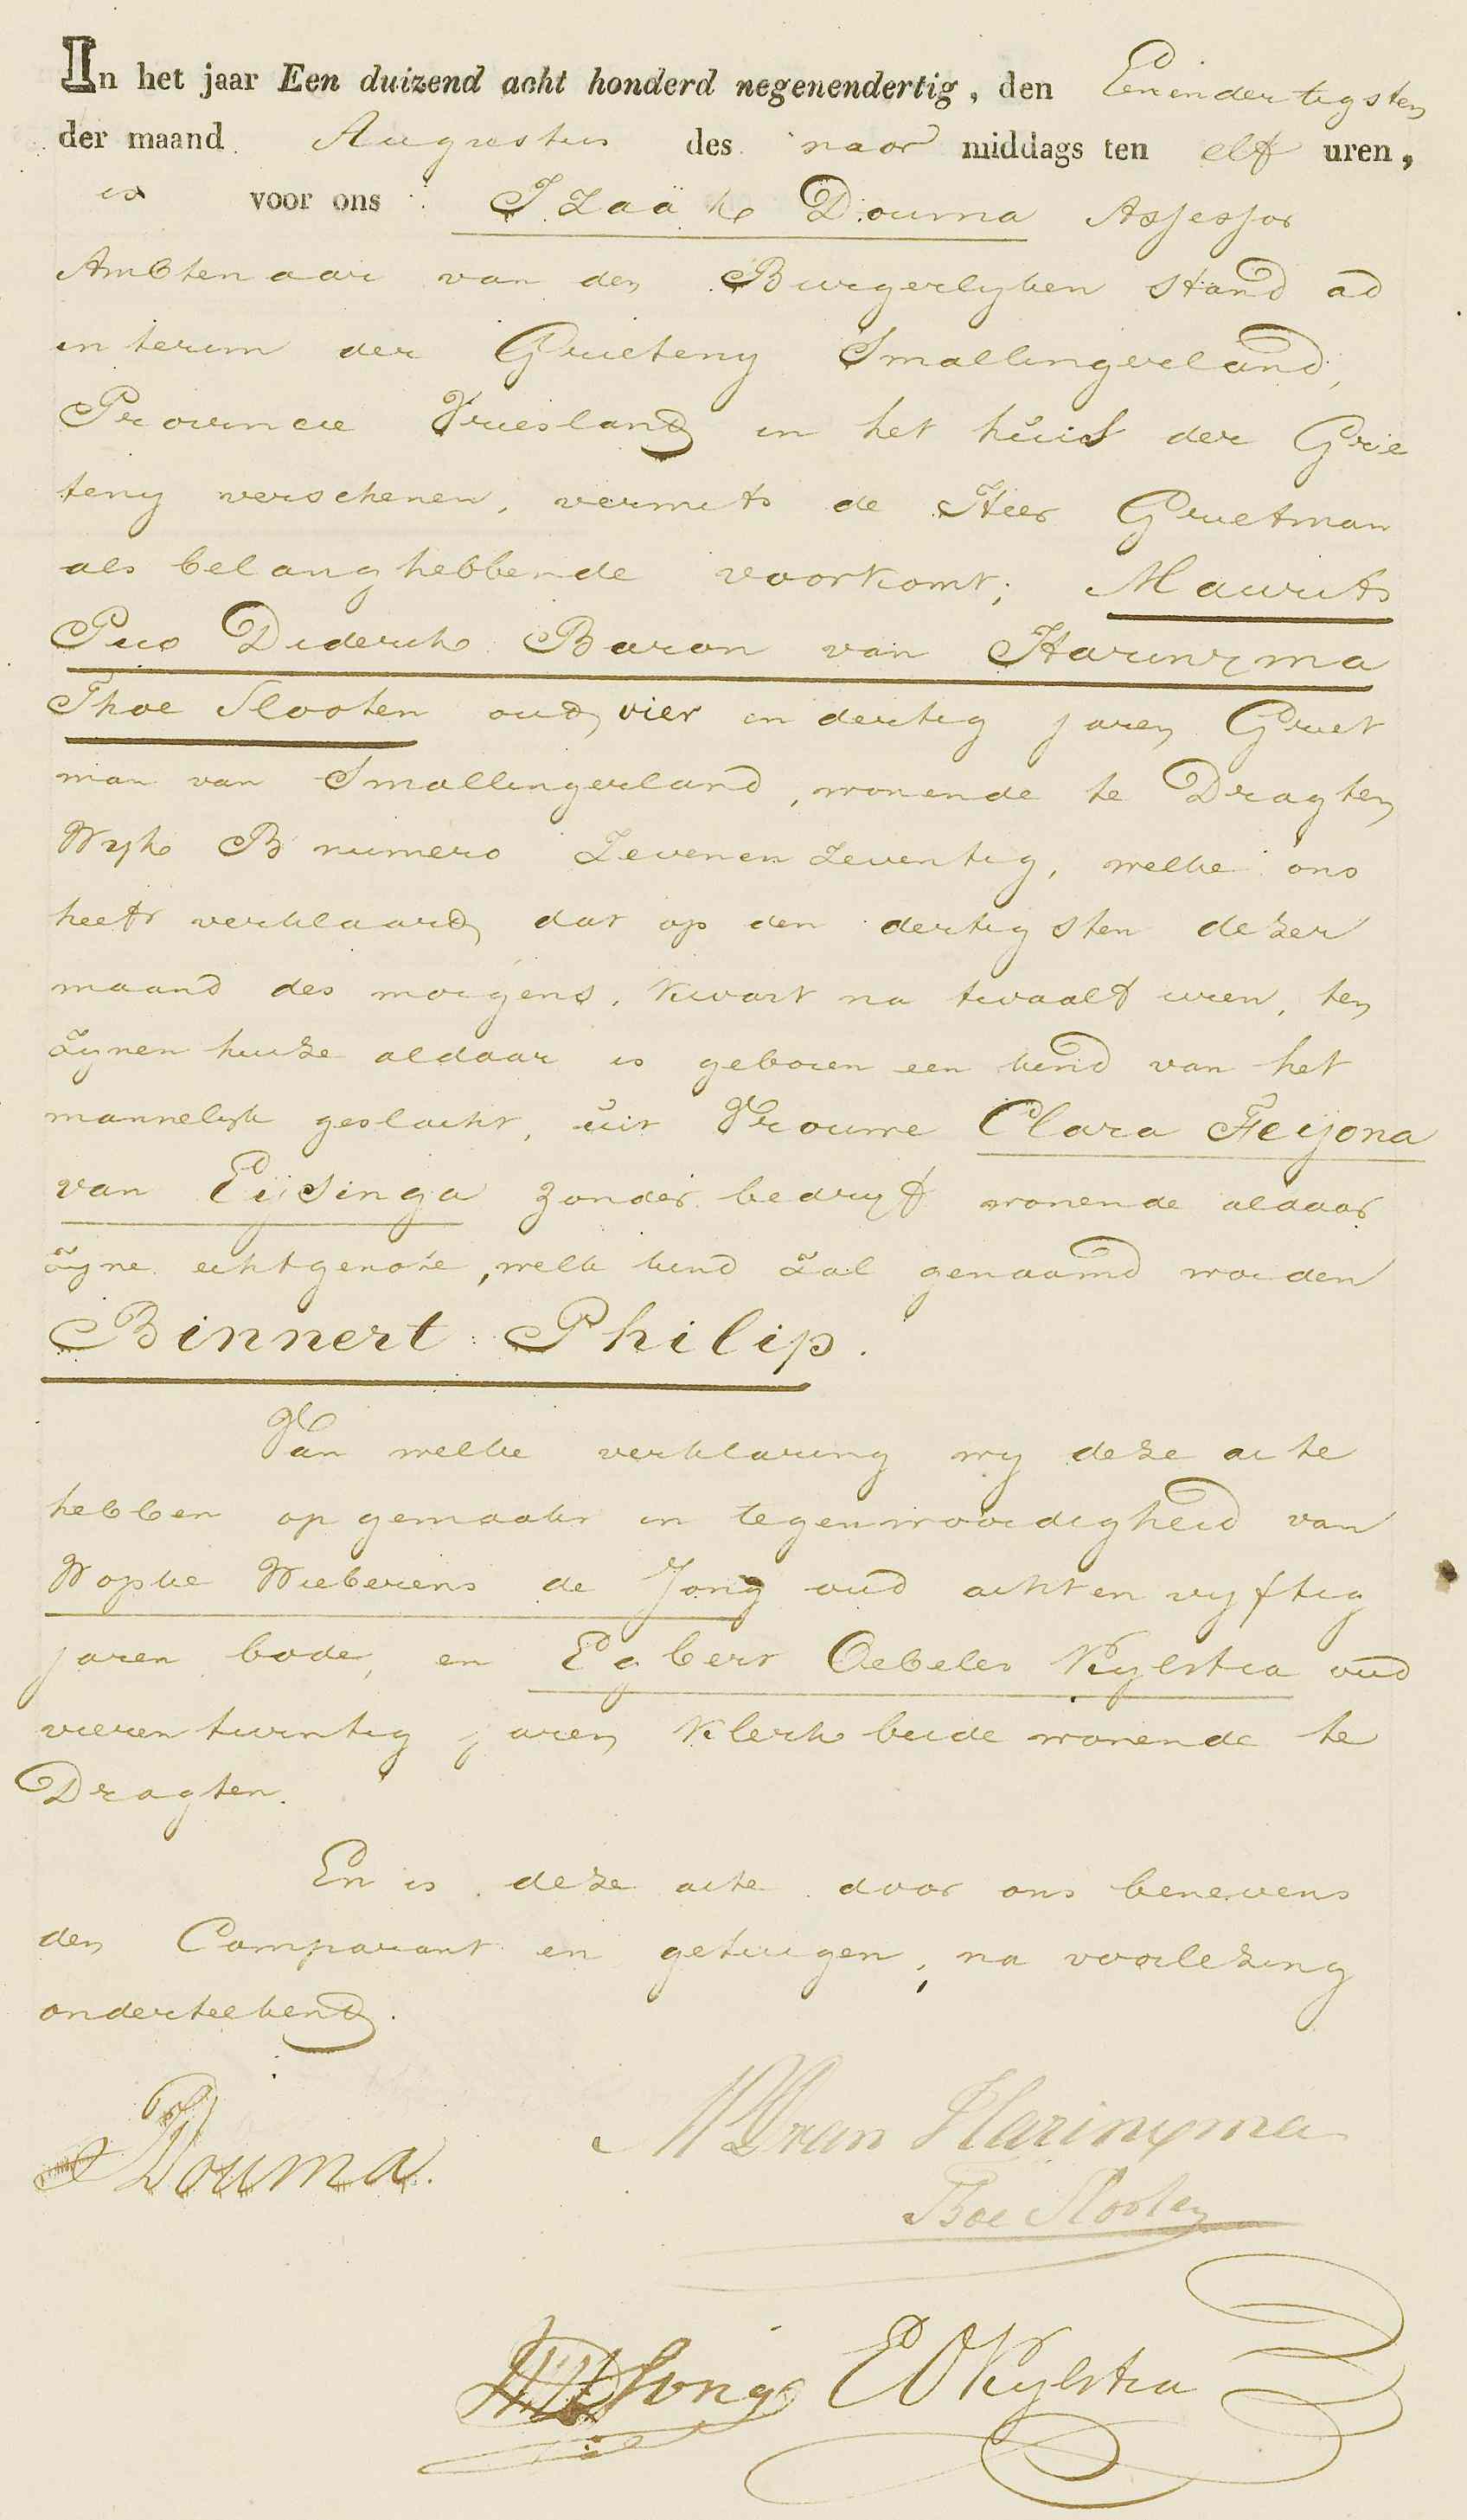 In het jaar Een duizend acht honderd negenendertig, den Eenendertigsten
der maand Augustus des voor middags ten elf uren,
is voor ons Izaäk Douma Assessor
Ambtenaar van den Burgerlyken stand ad
interim der Grieteny Smallingerland,
Provincie Vriesland in het huis der Grie
teny verschenen, vermits de Heer Grietman
als belanghebbende voorkomt; Maurits
Pico Diderik Baron van Harinxma
Thoe Slooten oud vier en dertig jaren Griet
man van Smallingerland, wonende te Dragten
Wyk B numero Zevenenzeventig, welke ons
heeft verklaard dat op den dertigsten dezer
maand des morgens, kwart na twaalf uren, ten
zynen huize aldaar is geboren een kind van het
mannelyk geslacht, uit Vrouwe Clara Feijona
van Eijsinga zonder bedryf wonende aldaar
zyne echtgenote, welk kind zal genaamd worden
Binnert Philip.
Van welke verklaring wy deze acte
hebben opgemaakt in tegenwoordigheid van
Wopke Wieberens de Jong oud achtenvyftig
jaren bode, en Egbert Oebeles Kylstra oud
vierentwintig jaren Klerk beide wonende te
Dragten.
En is deze acte door ons benevens
den Comparant en getuigen, na voorlezing
onderteekend.
I Douma.
MPD van Harinxma
Thoe Slooten
WW d Jong EO Kylstra